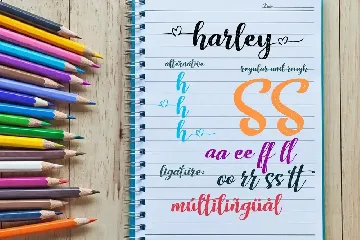 harley
alternative
regular and rough
h
h
h
SS
aa ee ff ll
ligature:
oo rr ss tt
múltílíngüàl